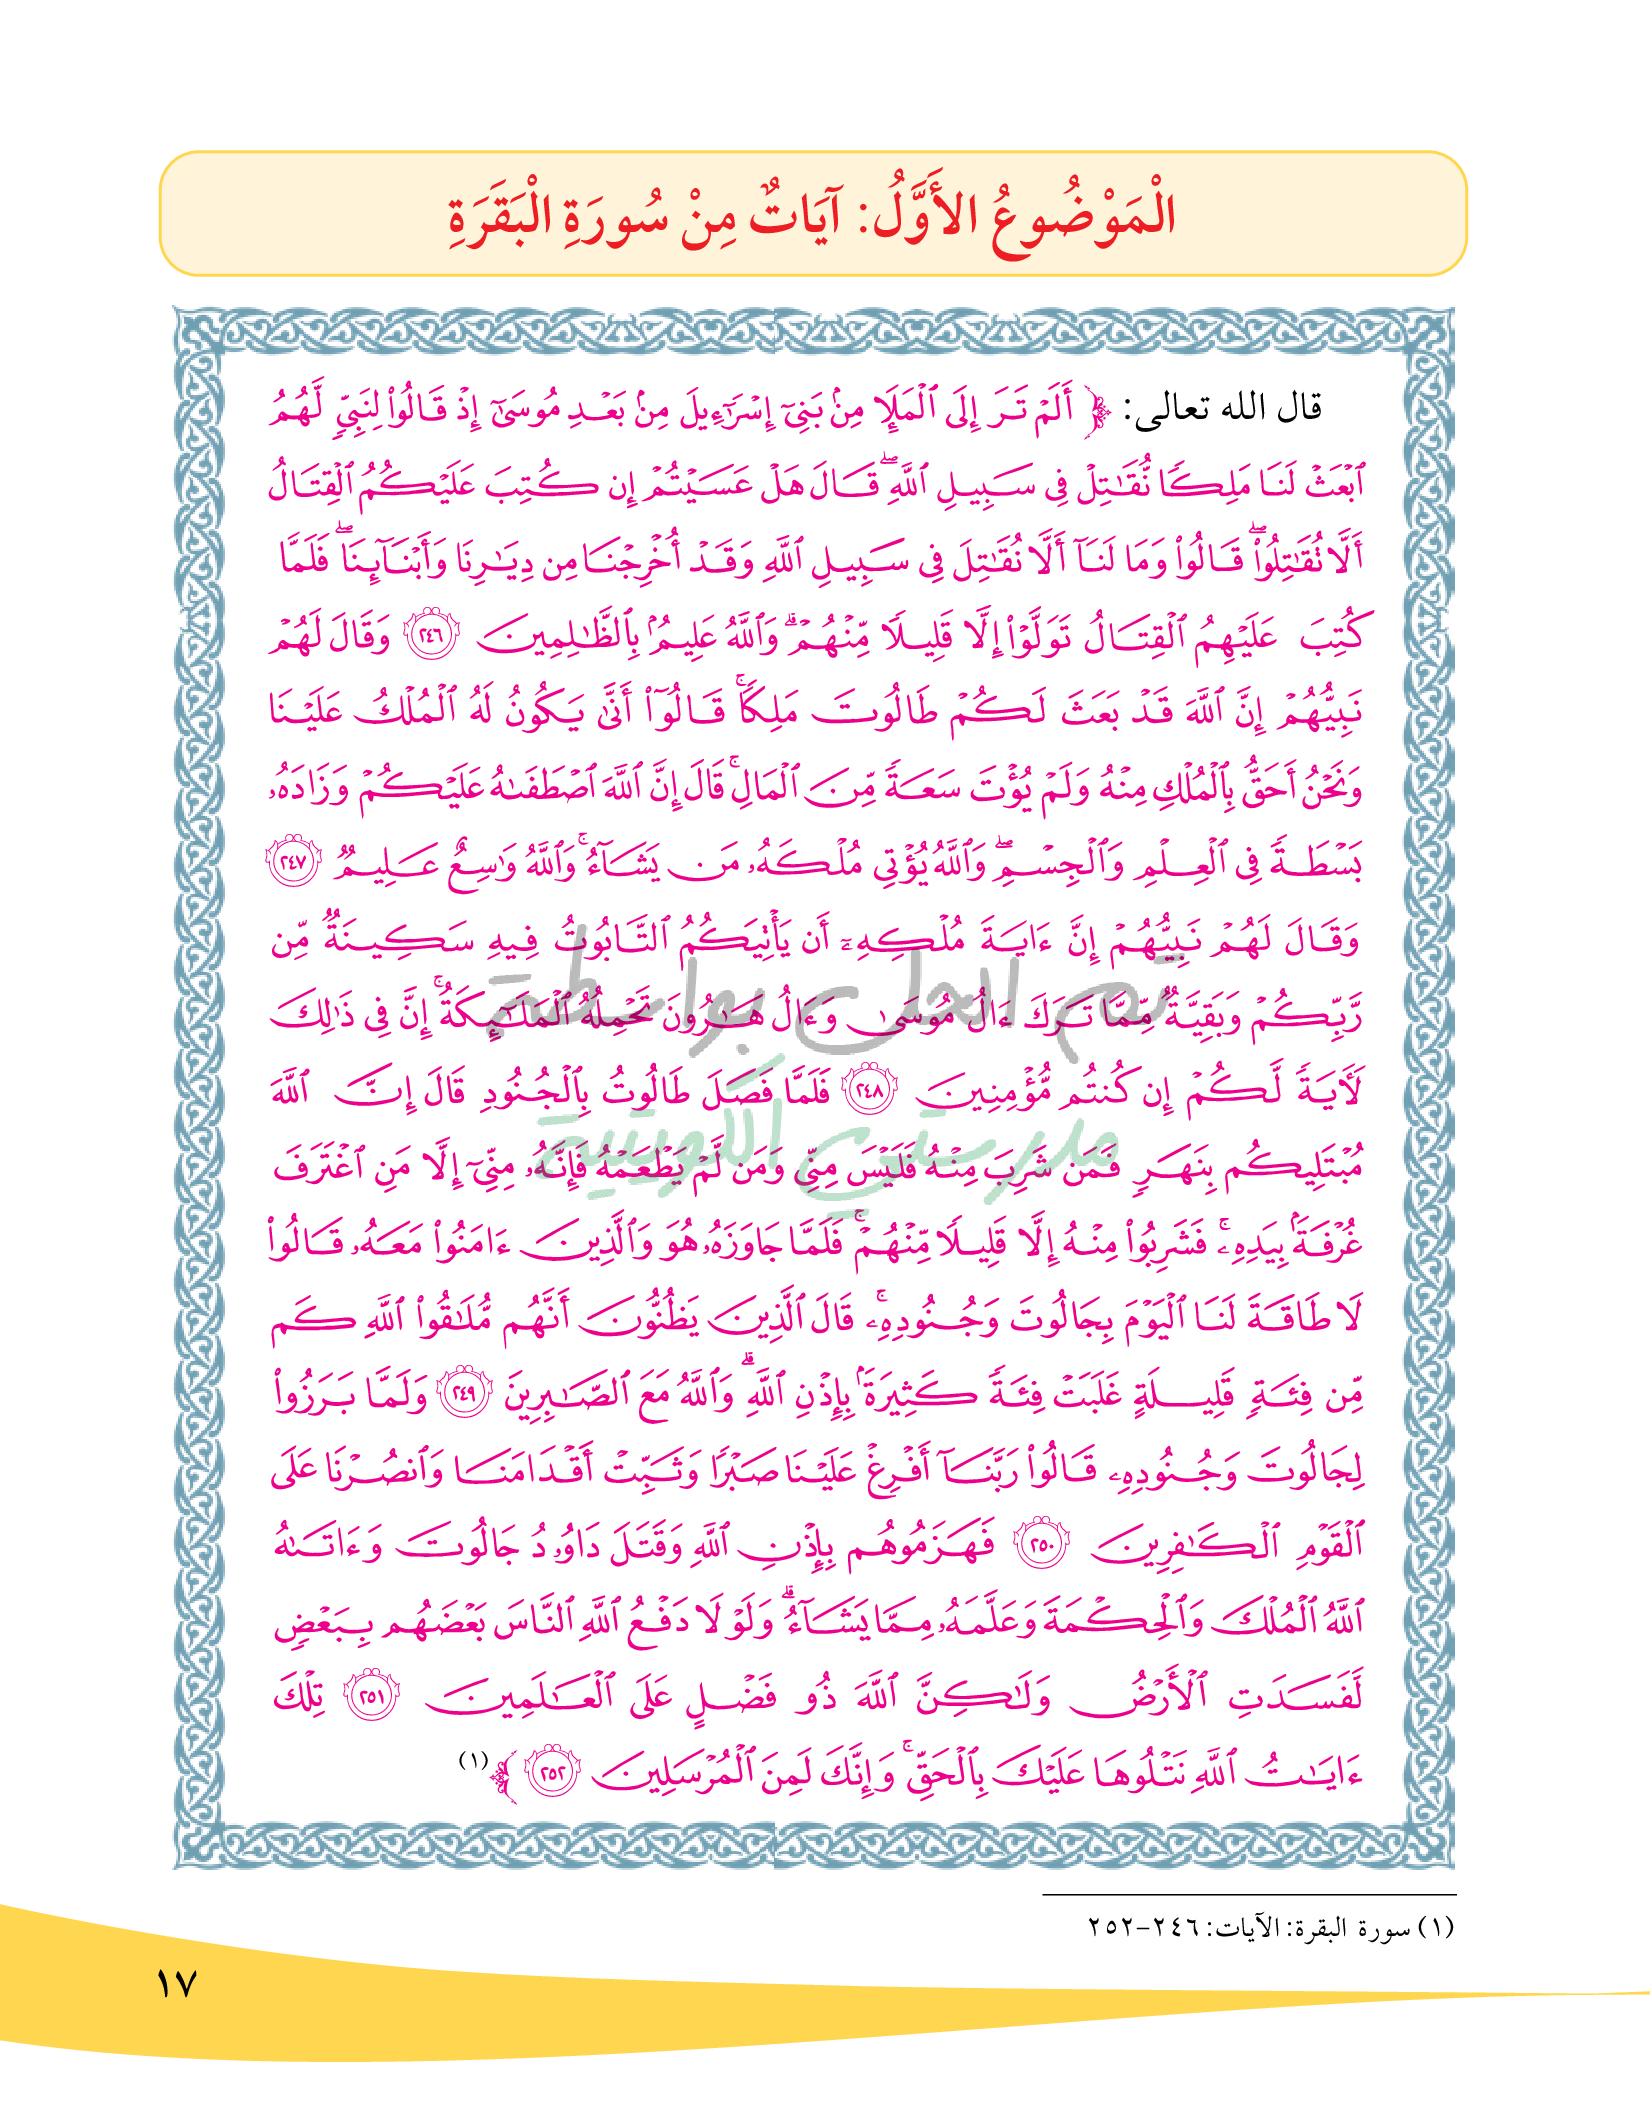 الْمَوْضُوعُ الأَوَّلُ: آيَاتٌ مِنْ سُورَةِ الْبَقَرَةِ
قال الله تعالى: ﴿ أَلَمْ تَرَ إِلَى ٱلْمَلَإِ مِنۢ بَنِىٓ إِسْرَٰٓءِيلَ مِنۢ بَعْدِ مُوسَىٰٓ إِذْ قَالُوا۟ لِنَبِىٍّ لَّهُمُ
ٱبْعَثْ لَنَا مَلِكًا نُّقَٰتِلْ فِى سَبِيلِ ٱللَّهِ ۖ قَالَ هَلْ عَسَيْتُمْ إِن كُتِبَ عَلَيْكُمُ ٱلْقِتَالُ
أَلَّا تُقَٰتِلُوا۟ ۖ قَالُوا۟ وَمَا لَنَآ أَلَّا نُقَٰتِلَ فِى سَبِيلِ ٱللَّهِ وَقَدْ أُخْرِجْنَا مِن دِيَٰرِنَا وَأَبْنَآئِنَا ۖ فَلَمَّا
كُتِبَ عَلَيْهِمُ ٱلْقِتَالُ تَوَلَّوْا۟ إِلَّا قَلِيلًا مِّنْهُمْ ۗ وَٱللَّهُ عَلِيمٌۢ بِٱلظَّٰلِمِينَ ٢٤٦ وَقَالَ لَهُمْ
نَبِيُّهُمْ إِنَّ ٱللَّهَ قَدْ بَعَثَ لَكُمْ طَالُوتَ مَلِكًا ۚ قَالُوٓا۟ أَنَّىٰ يَكُونُ لَهُ ٱلْمُلْكُ عَلَيْنَا
وَنَحْنُ أَحَقُّ بِٱلْمُلْكِ مِنْهُ وَلَمْ يُؤْتَ سَعَةً مِّنَ ٱلْمَالِ ۚ قَالَ إِنَّ ٱللَّهَ ٱصْطَفَىٰهُ عَلَيْكُمْ وَزَادَهُۥ
بَسْطَةً فِى ٱلْعِلْمِ وَٱلْجِسْمِ ۖ وَٱللَّهُ يُؤْتِى مُلْكَهُۥ مَن يَشَآءُ ۚ وَٱللَّهُ وَٰسِعٌ عَلِيمٌ ٢٤٧
وَقَالَ لَهُمْ نَبِيُّهُمْ إِنَّ ءَايَةَ مُلْكِهِۦٓ أَن يَأْتِيَكُمُ ٱلتَّابُوتُ فِيهِ سَكِينَةٌ مِّن
رَّبِّكُمْ وَبَقِيَّةٌ مِّمَّا تَرَكَ ءَالُ مُوسَىٰ وَءَالُ هَٰرُونَ تَحْمِلُهُ ٱلْمَلَٰٓئِكَةُ ۚ إِنَّ فِى ذَٰلِكَ
تم الحل بواسطة
لَءَايَةً لَّكُمْ إِن كُنتُم مُّؤْمِنِينَ ٢٤٨ فَلَمَّا فَصَلَ طَالُوتُ بِٱلْجُنُودِ قَالَ إِنَّ ٱللَّهَ
مدرستي الكويتية
مُبْتَلِيكُم بِنَهَرٍ فَمَن شَرِبَ مِنْهُ فَلَيْسَ مِنِّى وَمَن لَّمْ يَطْعَمْهُ فَإِنَّهُۥ مِنِّىٓ إِلَّا مَنِ ٱغْتَرَفَ
غُرْفَةًۢ بِيَدِهِۦ ۚ فَشَرِبُوا۟ مِنْهُ إِلَّا قَلِيلًا مِّنْهُمْ ۚ فَلَمَّا جَاوَزَهُۥ هُوَ وَٱلَّذِينَ ءَامَنُوا۟ مَعَهُۥ قَالُوا۟
لَا طَاقَةَ لَنَا ٱلْيَوْمَ بِجَالُوتَ وَجُنُودِهِۦ ۚ قَالَ ٱلَّذِينَ يَظُنُّونَ أَنَّهُم مُّلَٰقُوا۟ ٱللَّهِ كَم
مِّن فِئَةٍ قَلِيلَةٍ غَلَبَتْ فِئَةً كَثِيرَةًۢ بِإِذْنِ ٱللَّهِ ۗ وَٱللَّهُ مَعَ ٱلصَّٰبِرِينَ ٢٤٩ وَلَمَّا بَرَزُوا۟
لِجَالُوتَ وَجُنُودِهِۦ قَالُوا۟ رَبَّنَآ أَفْرِغْ عَلَيْنَا صَبْرًا وَثَبِّتْ أَقْدَامَنَا وَٱنصُرْنَا عَلَى
ٱلْقَوْمِ ٱلْكَٰفِرِينَ ٢٥٠ فَهَزَمُوهُم بِإِذْنِ ٱللَّهِ وَقَتَلَ دَاوُۥدُ جَالُوتَ وَءَاتَىٰهُ
ٱللَّهُ ٱلْمُلْكَ وَٱلْحِكْمَةَ وَعَلَّمَهُۥ مِمَّا يَشَآءُ ۗ وَلَوْلَا دَفْعُ ٱللَّهِ ٱلنَّاسَ بَعْضَهُم بِبَعْضٍ
لَّفَسَدَتِ ٱلْأَرْضُ وَلَٰكِنَّ ٱللَّهَ ذُو فَضْلٍ عَلَى ٱلْعَٰلَمِينَ ٢٥١ تِلْكَ
ءَايَٰتُ ٱللَّهِ نَتْلُوهَا عَلَيْكَ بِٱلْحَقِّ ۚ وَإِنَّكَ لَمِنَ ٱلْمُرْسَلِينَ ٢٥٢ ﴾ (١)
(١) سورة البقرة: الآيات: ٢٤٦-٢٥٢
١٧